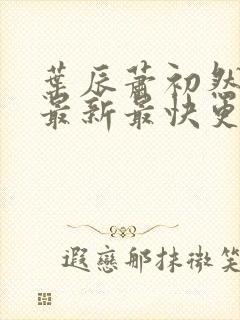 葉辰蕭初然
最新最快更
遐戀那抹微笑